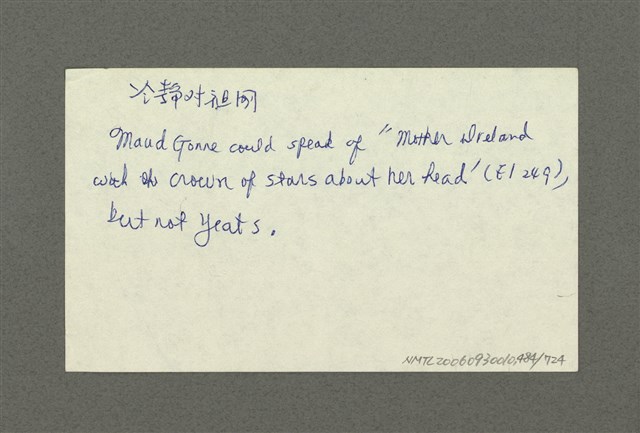 冷静对祖国
Maud Gonne could speak of "Mother Ireland
with the crown of stars about her head" (E1 249),
but not Yeats.
NMTL20060930010,484/724